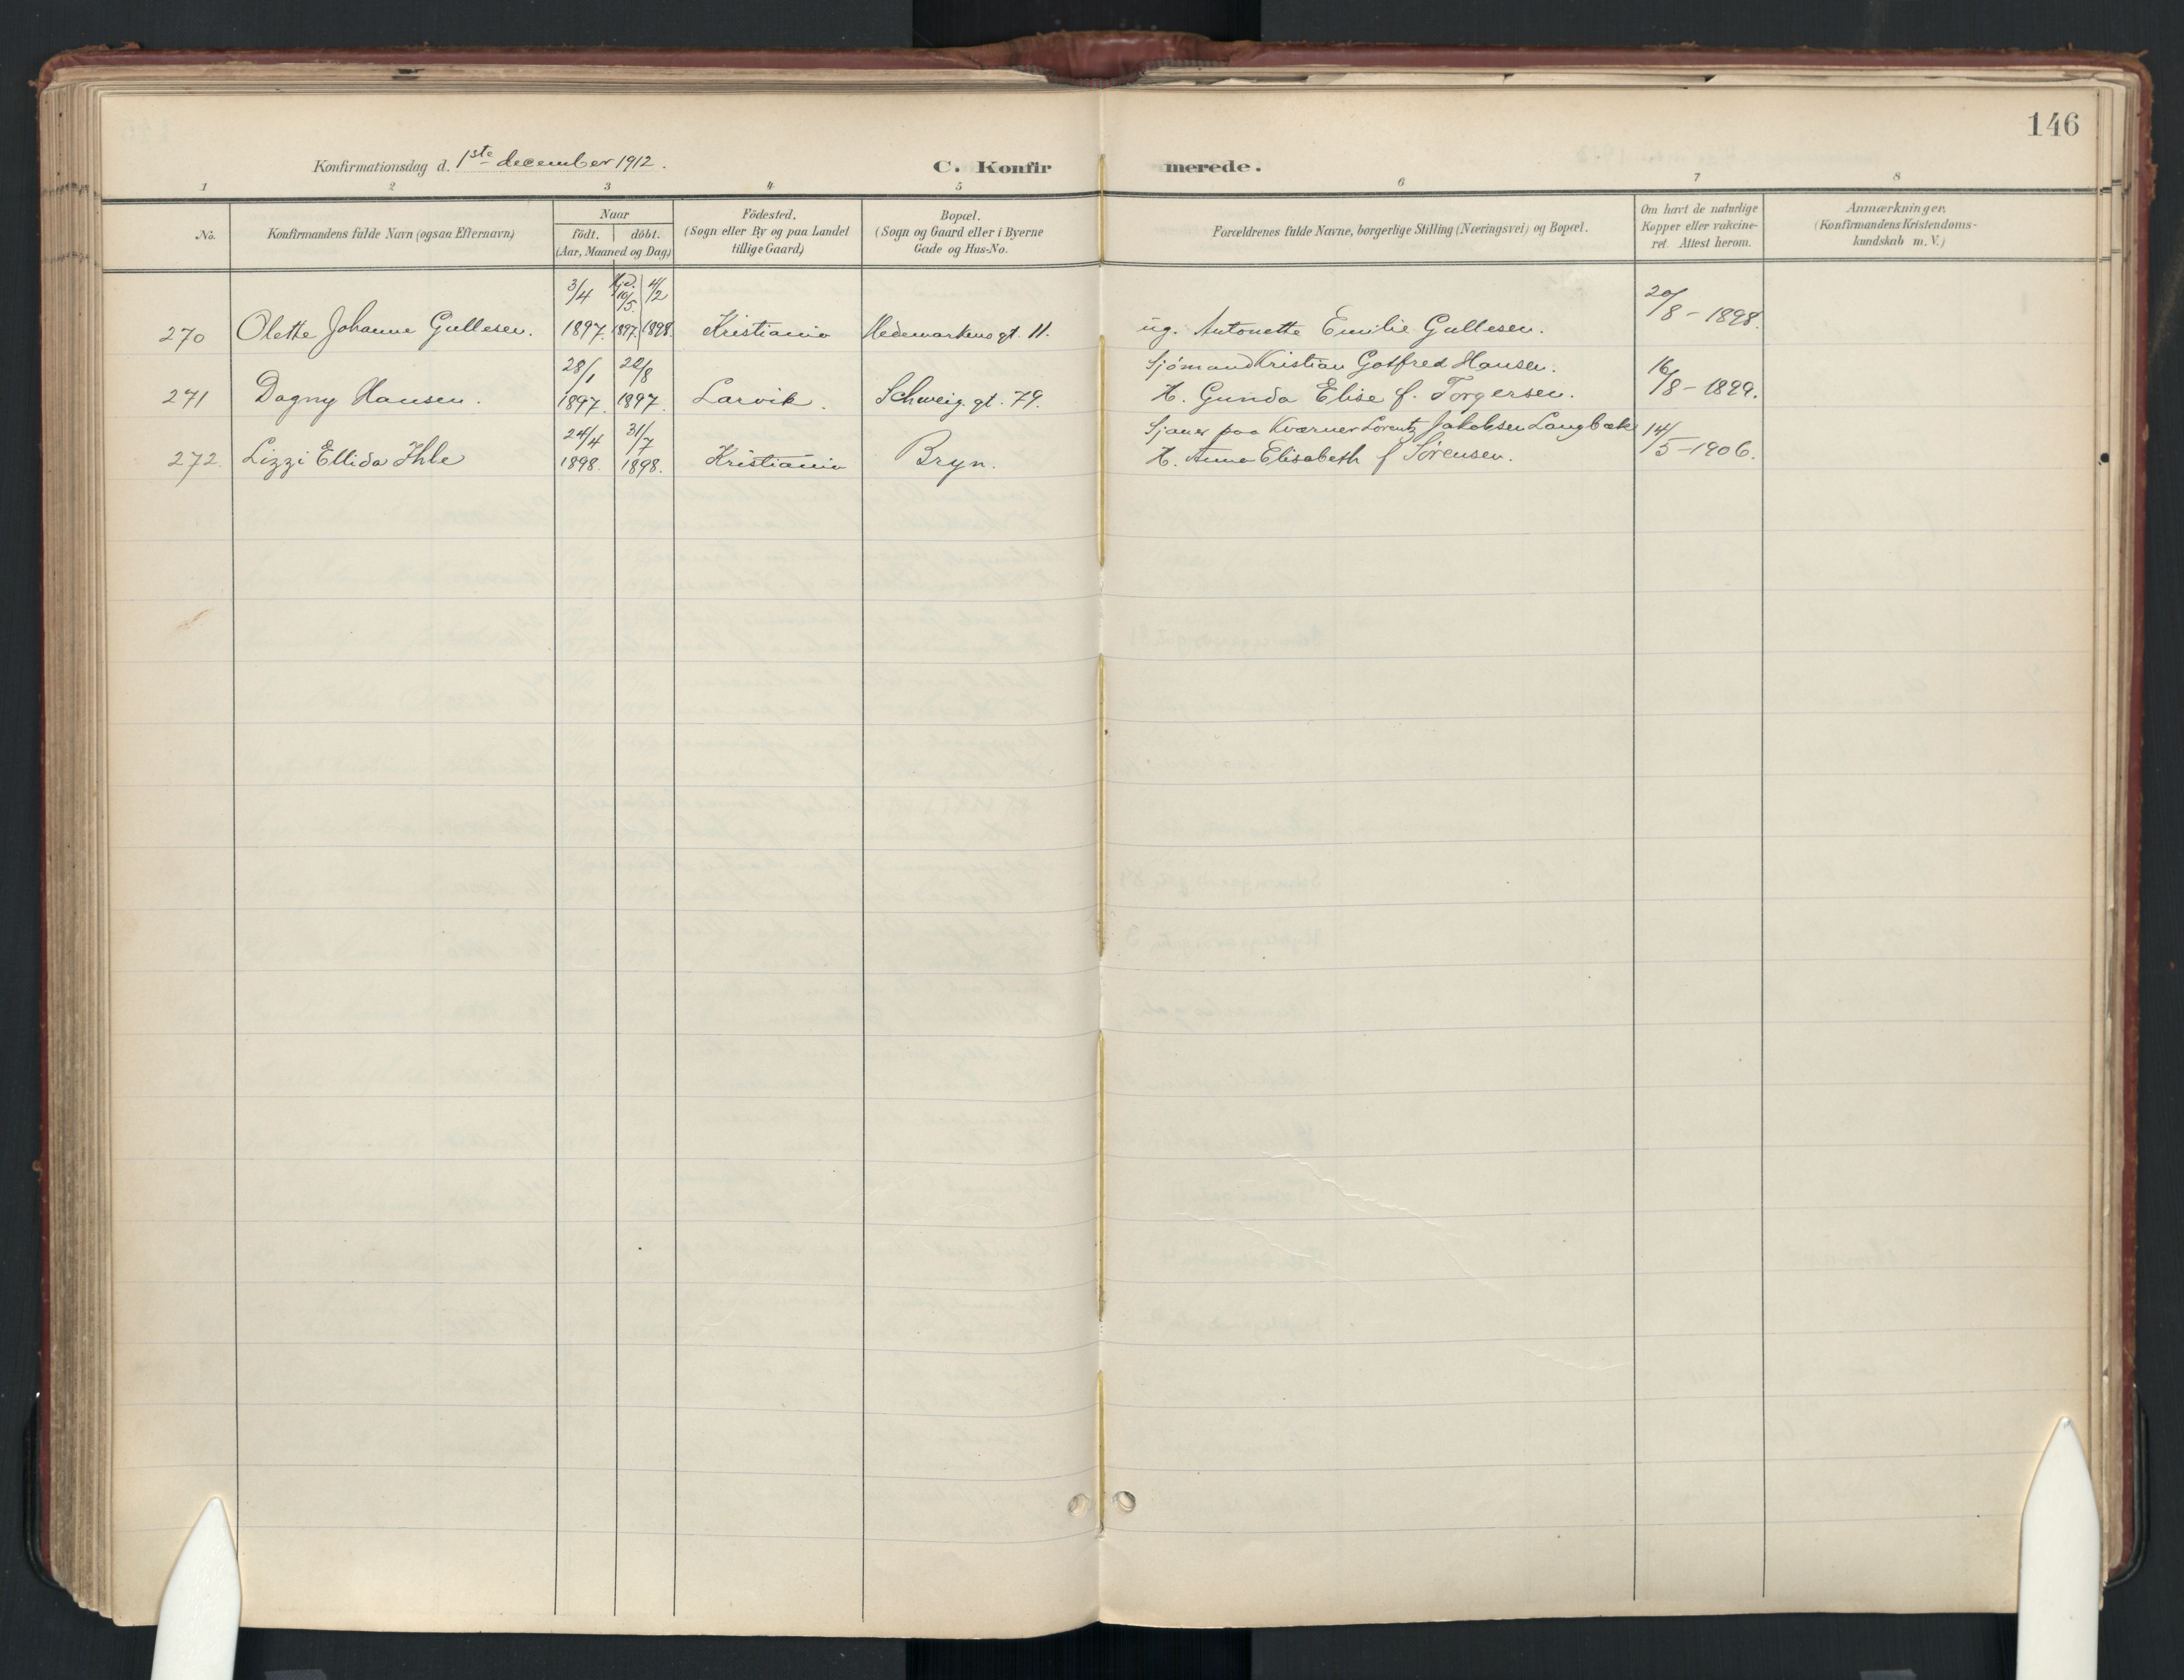 146
Konfirmationsdag d. 1ste december 1912.
C. Konfirmerede.
1 2 3 4 5 6 7 8
No.
Konfirmandens fulde Navn (ogsaa Efternavn)
Naar
födt. döbt.
(Aar, Maaned og Dag)
Födested.
(Sogn eller By og paa Landet
tillige Gaard)
Bopæl.
(Sogn og Gaard eller i Byerne
Gade og Hus-No.
Forældrenes fulde Navne, borgerlige Stilling (Næringsvei) og Bopæl.
Om havt de naturlige
Kopper eller vakcine-
ret. Attest herom.
Anmærkninger.
(Konfirmandens Kristendoms-
kundskab m. V.)
3/4 hjd. 10/5 4/2 20/8 - 1898.
270 Olette Johanne Gullesen. 1897. 1897. 1898. Kristiania Hedemarkens gt. 11. ug. Antonette Emilie Gullesen.
28/1 22/8 Sjömand Kristian Gotfred Hansen. 16/8 - 1899.
271 Dagny Hansen. 1897. 1897. Larvik. Schweig. gt. 79. H. Gunda Elise f. Torgersen.
24/4 31/7 Sjauer paa Kværner Lorentz Jakobsen Langbæk 14/5 - 1906.
272. Lizzi Ellida Ihle 1898. 1898. Kristiania Bryn. H. Anna Elisabeth f Sörensen.